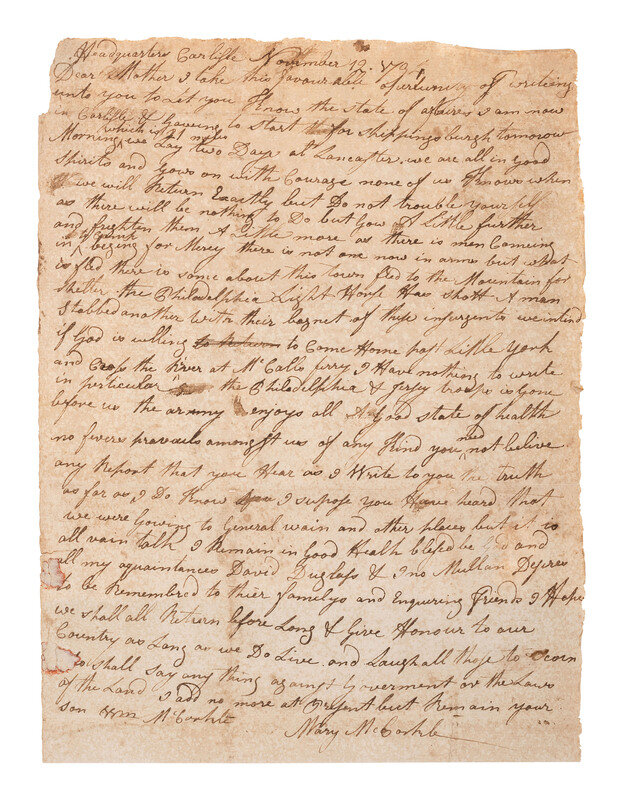 Headquarters Carlisle November 12. 1794
Dear Mother I take this favourable opertunity of writeing
unto you to Let you Know the state of affaires I am now
in Carlisle & haveing to start for shippingsburgh tomorow
Morning which is we Lay two Days at Lancaster. we are all in Good
Spirits and Gows on with Courage none of us Knows when
we will Return Exactly but Do not trouble yourself
as there will be nothing to Do but Gow A Little further
and frighten them A Little more as there is men Comeing
in to Camp beging for Mercy there is not one now in arms but what
is fled there is some about this town fled to the Mountain for
Shelter the Philadelphia Light Horse Has shott A man
Stabbed another with their baznet of these insurgents we intend
if God is willing to Return to Come Home past Little York
and Cross the River at McCalls ferry I Have nothing to write
in perticular the Philadelphia & Jersy troops is Gone
before us the army enjoys all A Good state of health
no fevers prevails amongst us of any Kind you need not belive
any Report that you Hear as I Write to you the truth
as far as I Do Know I suppose you Have heard that
we were Gowing to General wain and other places but it is
all vain talk I Remain in Good Health blessed be and
all my aquaintances David Duglass & Jno Mullan Desires
to be Remembred to thier familys and Enquiring friends I Hope
we shall all Return before Long & Give Honour to our
Country as Long as we Do Live and Laugh all those to Scorn
shall say any thing against Goverment or the Laws
of the Land I add no more at Present but Remain your
son Wm McCorkle
Mary McCorkle